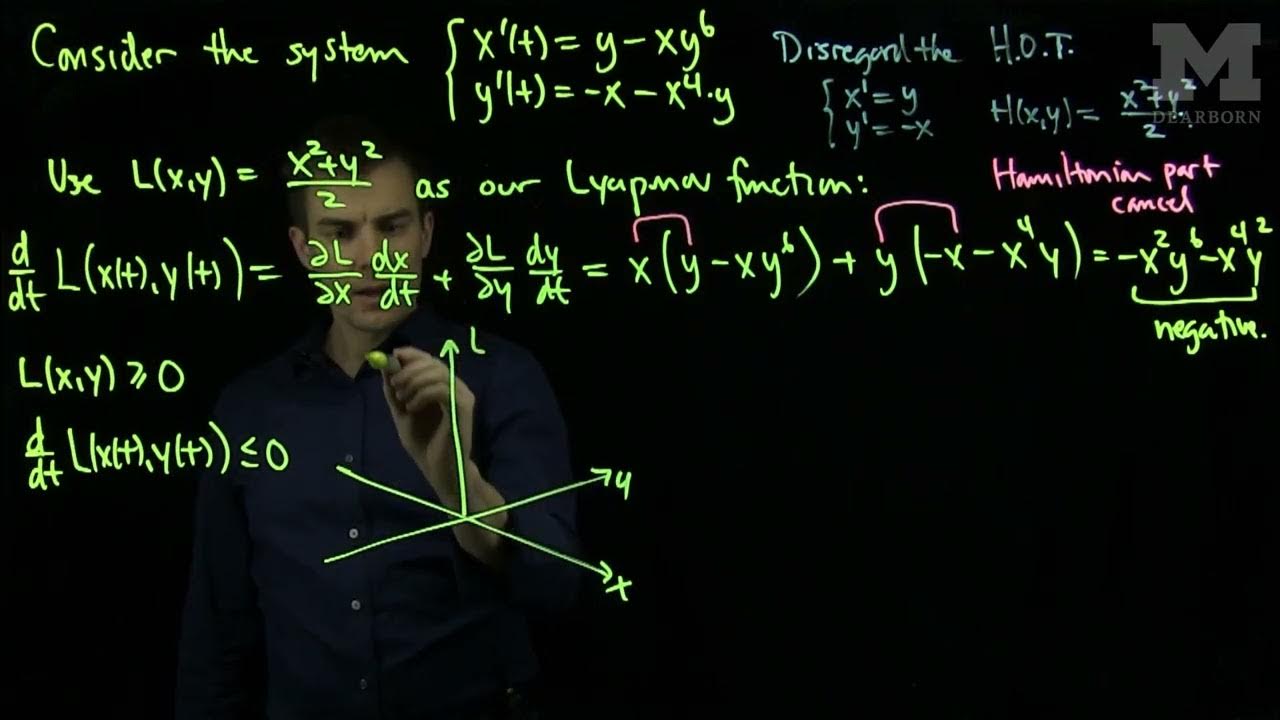 Consider the system { x'(t) = y - xy⁶
y'(t) = -x - x⁴·y
Disregard the H.O.T.
{ x' = y
y' = -x
H(x,y) = x²+y²/2
M
DEARBORN
Use L(x,y) = x²+y²/2 as our Lyapunov function:
Hamiltonian part
cancel
d/dt L(x(t),y(t)) = ∂L/∂x dx/dt + ∂L/∂y dy/dt = x(y - xy⁶) + y(-x - x⁴y) = -x²y⁶ - x⁴y²
negative.
L(x,y) ⩾ 0
d/dt L(x(t),y(t)) ≤ 0
L
y
x